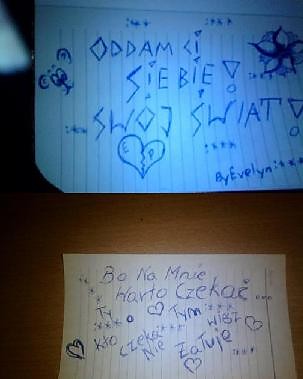 ODDAM CI
SIEBIE!
SWÓJ ŚWIAT!
E P
By Evelyn :***
Bo Na Mnie
Warto Czekać ...
Ty o Tym wiesz
Kto Czeka Nie Żałuje